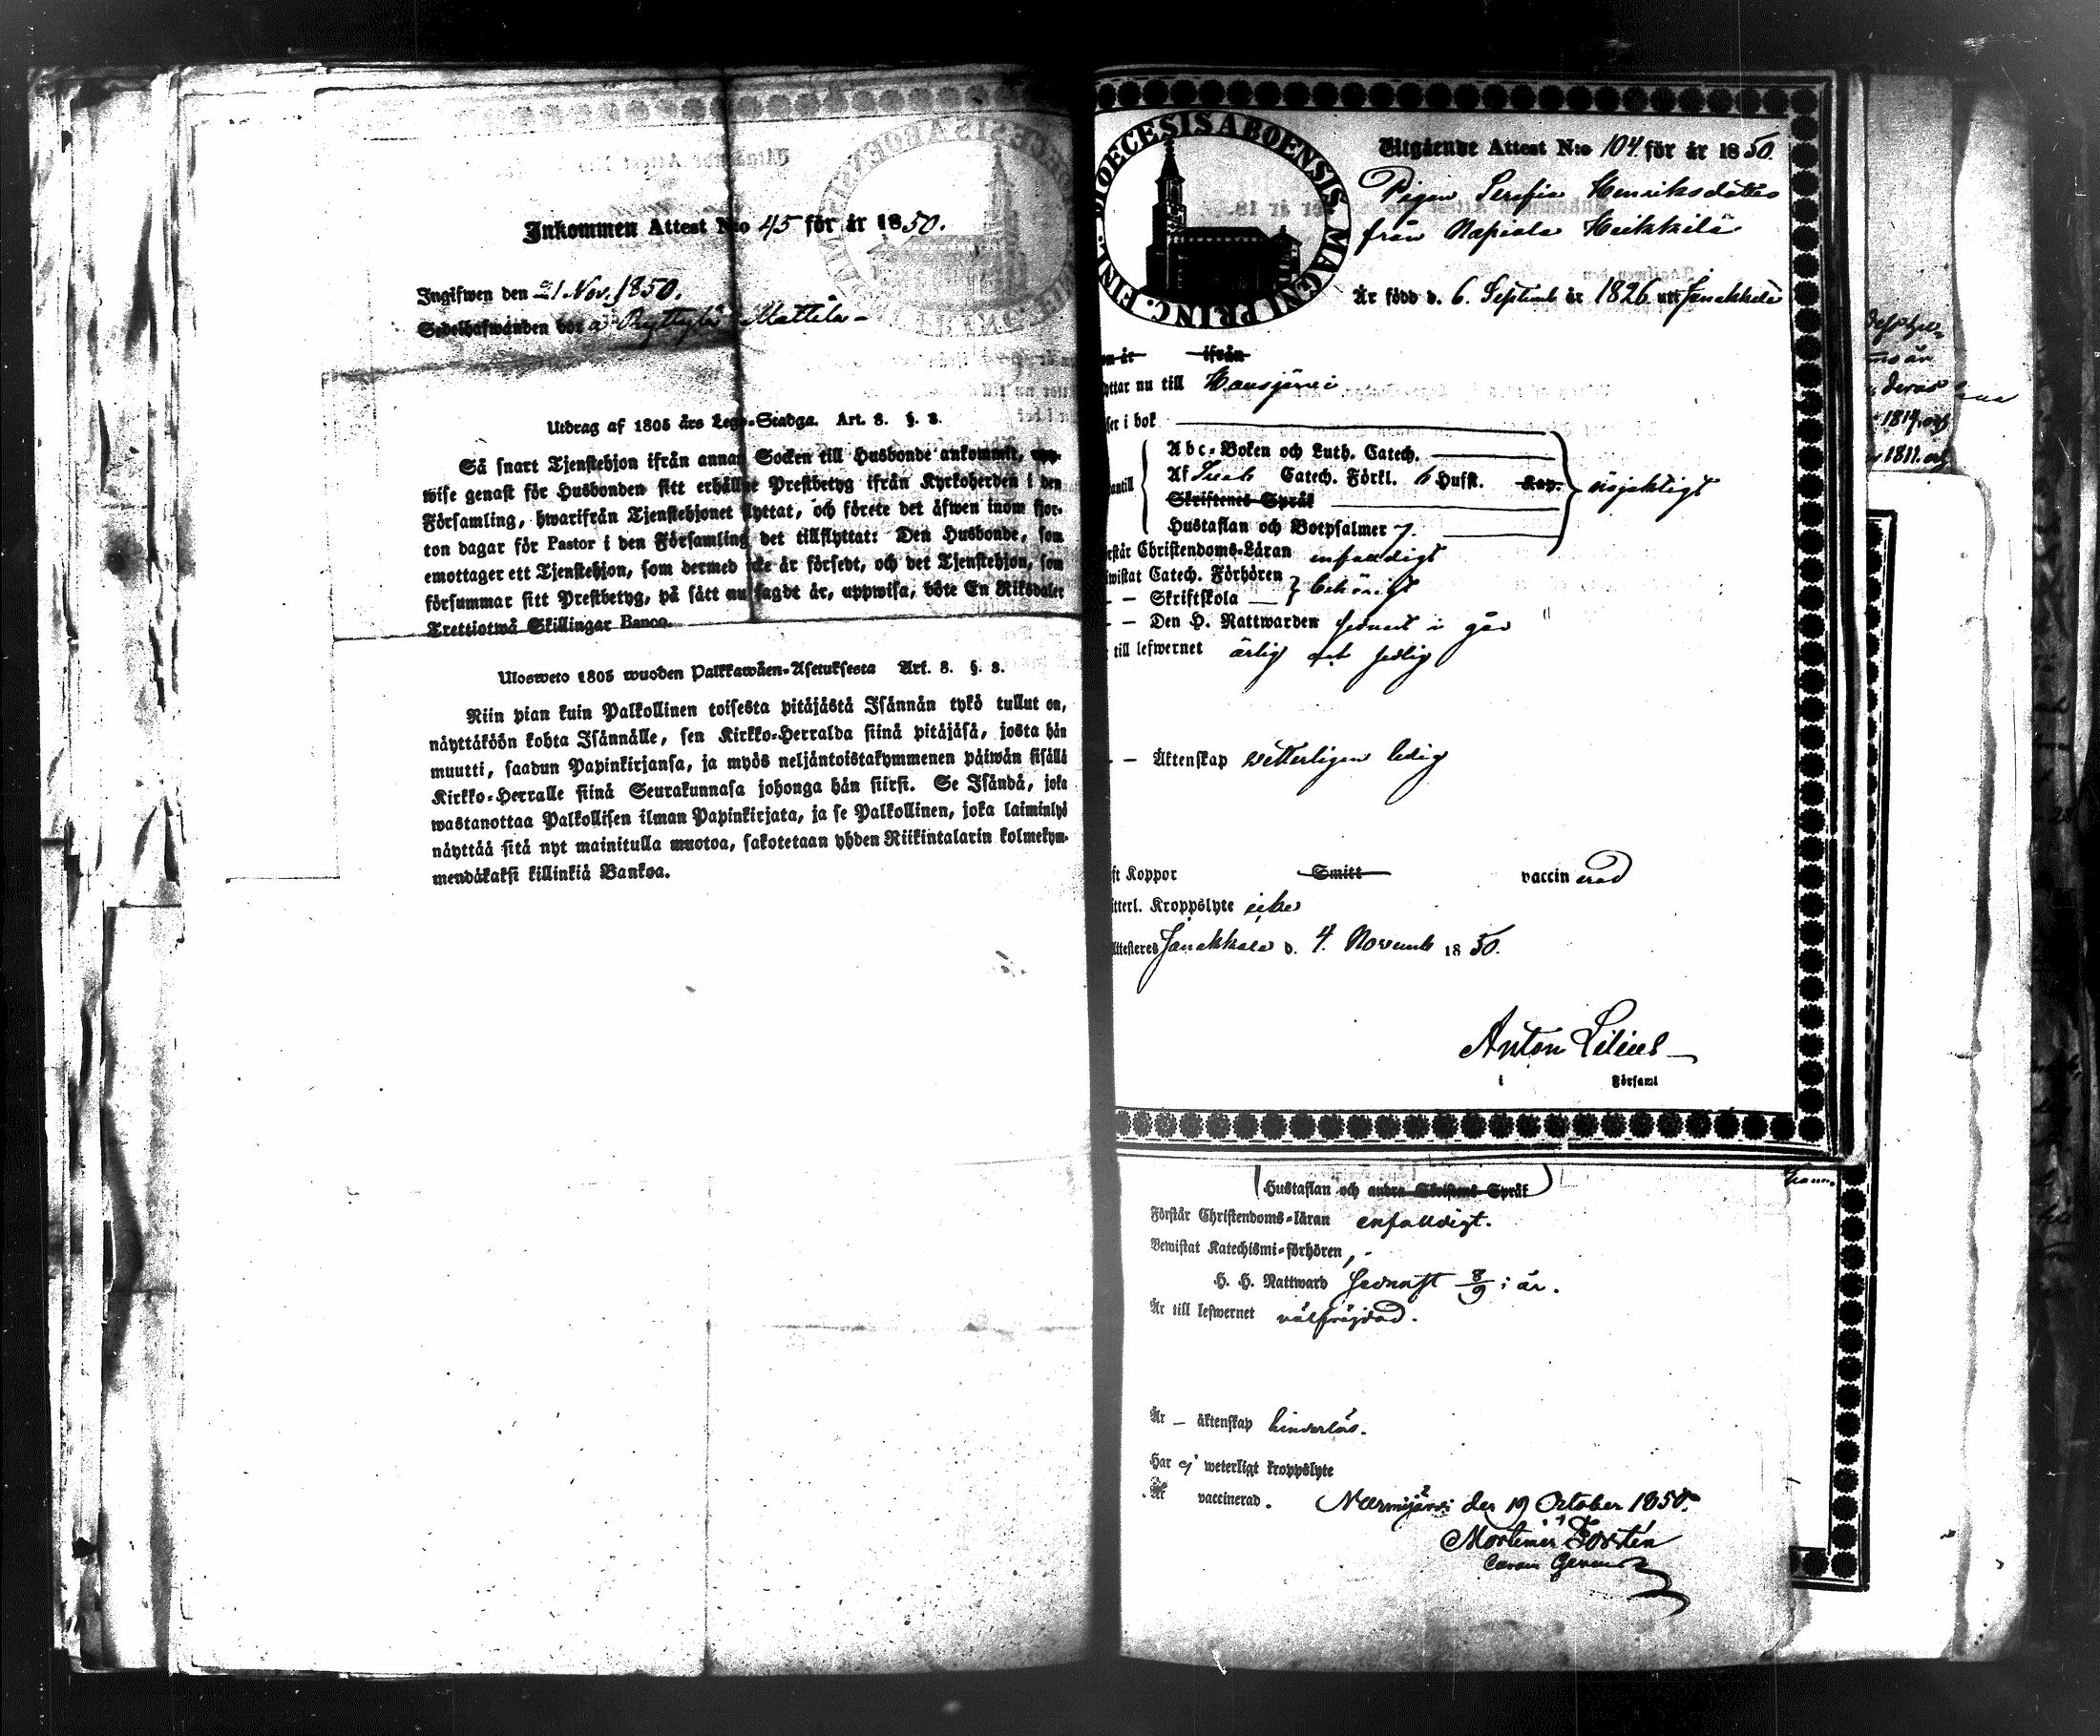 Inkommen Attest N:o 45 för år 1850.
Ingifwen den 21 Nov. 1850.
Sedelhafwanden bor å Ryttylä Mattila
Utdrag af 1805 års Lego-Stadga. Art. 8. §. 3.
Så snart Tjenstehjon ifrån annan Socken till Husbonde ankommit, upp-
wise genast för Husbonden sitt erhållne Prestbetyg ifrån Kyrkoherden i den
Församling, hwarifrån Tjenstehjonet flyttat, och förete det äfwen inom fjor-
ton dagar för Pastor i den Församling det tillflyttat: Den Husbonde, som
emottager ett Tjenstehjon, som dermed icke är försedt, och det Tjenstehjon, som
försummar sitt Prestbetyg, på sätt nu sagdt är, uppwisa, böte En Riksdaler
Trettiotwå Skillingar Banco.
Ulosweto 1805 wuoden Palkkawäen-Asetuksesta Art. 8. §. 3.
Niin pian kuin Palkollinen toisesta pitäjästä Isännän tykö tullut on,
näyttäköön kohta Isännälle, sen Kirkko-Herralda siinä pitäjäsä, josta hän
muutti, saadun Papinkirjansa, ja myös neljäntoistakymmenen päiwän sisällä
Kirkko-Herralle siinä Seurakunnasa johonga hän siirsi. Se Isändä, joka
wastanottaa Palkollisen ilman Papinkirjata, ja se Palkollinen, joka laiminlyö
näyttää sitä nyt mainitulla muotoa, sakotetaan yhden Riikintalarin kolmekym-
mendäkaksi killinkiä Bankoa.
DIOECESIS ABOENSIS MAGNI PRINC. FINL.
Utgående Attest N:o 104 för år 1850.
Pigan Serafia Henriksdotter
från Napiala Heikkilä
Är född d. 6. Septemb år 1826 uti Janakkala
om år ifrån
yttar nu till Hausjärvi
ser i bok
Abc-Boken och Luth. Catech.
antill Af Sweb Catech. Förkl. o Husft. Kap. nöjaktigt
Skriftenes Språk
Hustaflan och Botpsalmer 7.
rstår Christendoms-Läran enfaldigt
wistat Catech. Förhören behörigt
- — Skriftskola —
- — Den H. Nattwarden senast i går
till lefwernet ärlig och sedlig
- — Äktenskap vetterligen ledig
ft Koppor Smitt vaccinerad
itterl. Kroppslyte icke
Attesteres Janakkala d. 4. Novemb 1850.
Anton Lilius
i Församl
Hustaflan och andra Skriftens Språk
Förstår Christendoms-läran enfaldigt.
Bewistat Katechismi-förhören,
H. H. Nattward sednast 8/9 i år.
Är till lefwernet välfrejdad.
Är — äktenskap hinderlös.
Har ej weterligt kroppslyte
Är vaccinerad. Nurmijärvi den 19 October 1850.
Mortimer Forstén